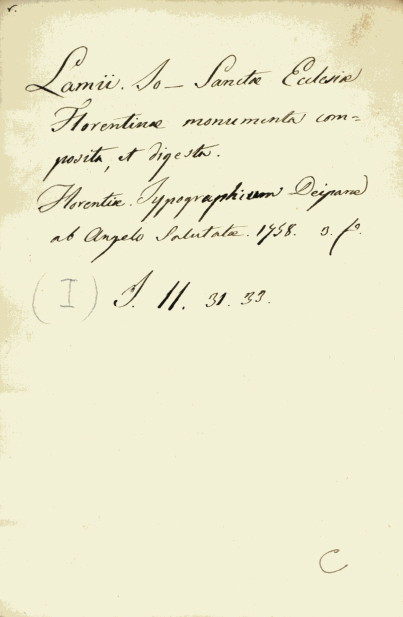 Lamii. Jo— Sanctæ Ecclesiæ
Florentinæ monumenta com=
posita, et digesta.
Florentiæ. Typographicum Deiparæ
ab Angelo Salutatæ. 1758. 3. fo.
(I) J. 11. 31. 33.
C